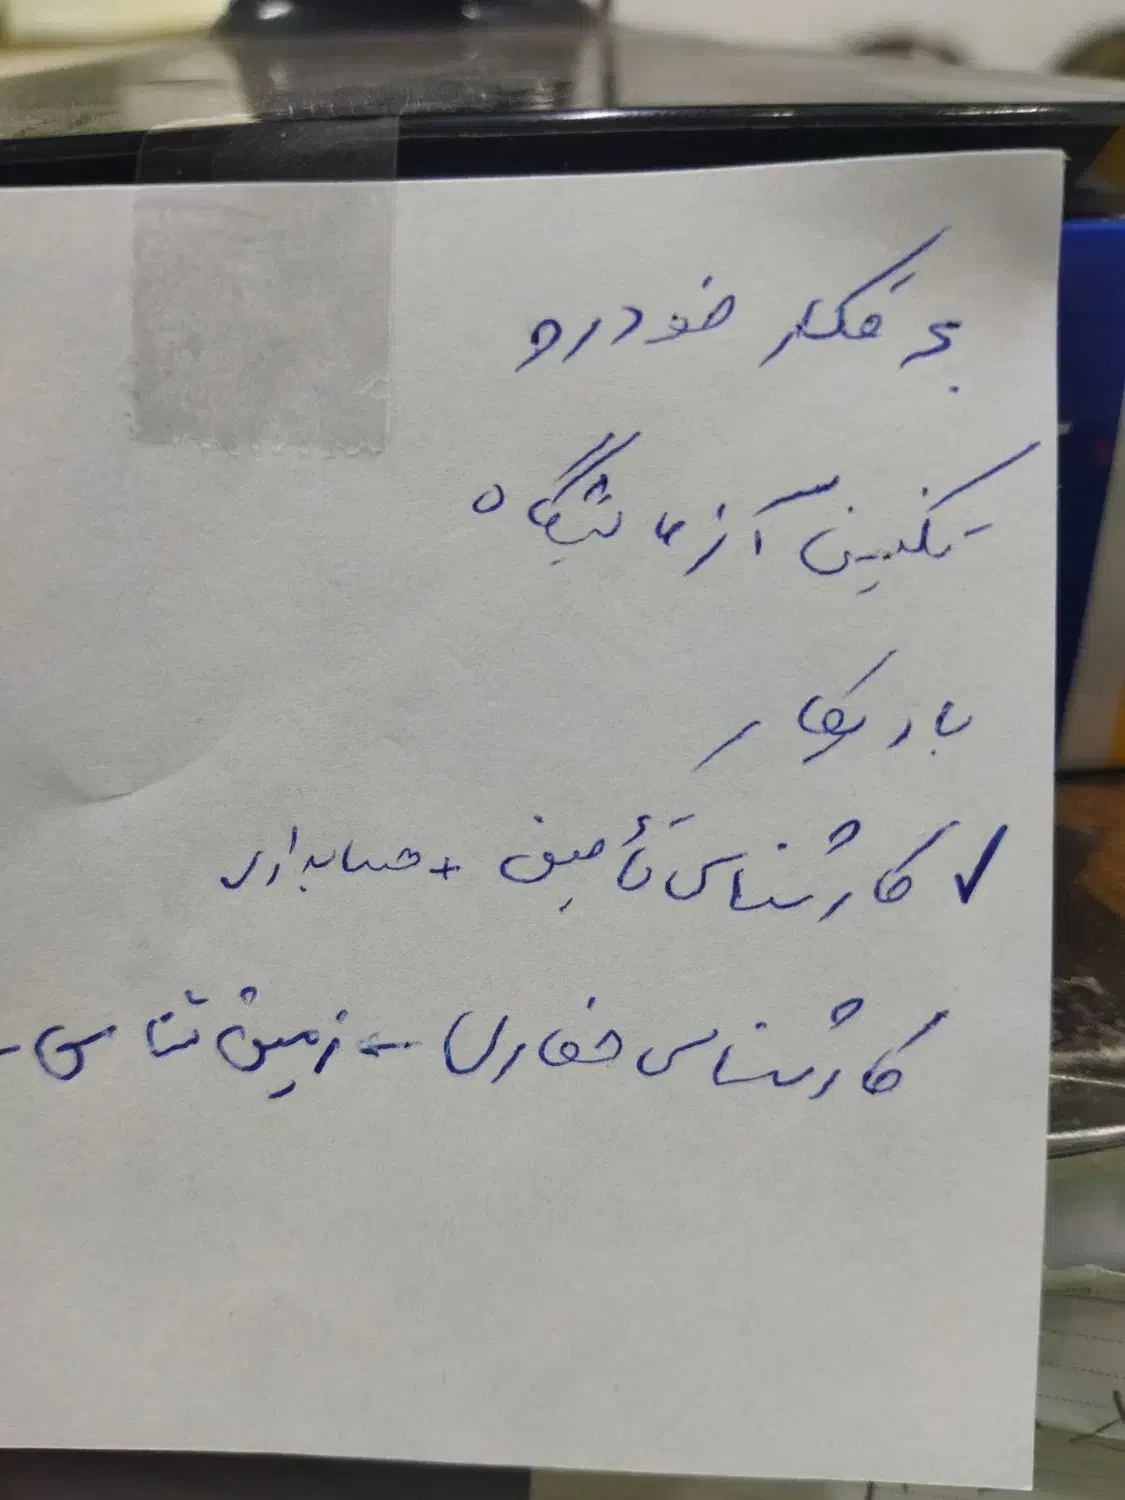 برقکار خودرو
تکنسین آزمایشگاه
بارکار
✓ کارشناس تأمین + حسابداری
کارشناس حفاری - زمین شناسی -